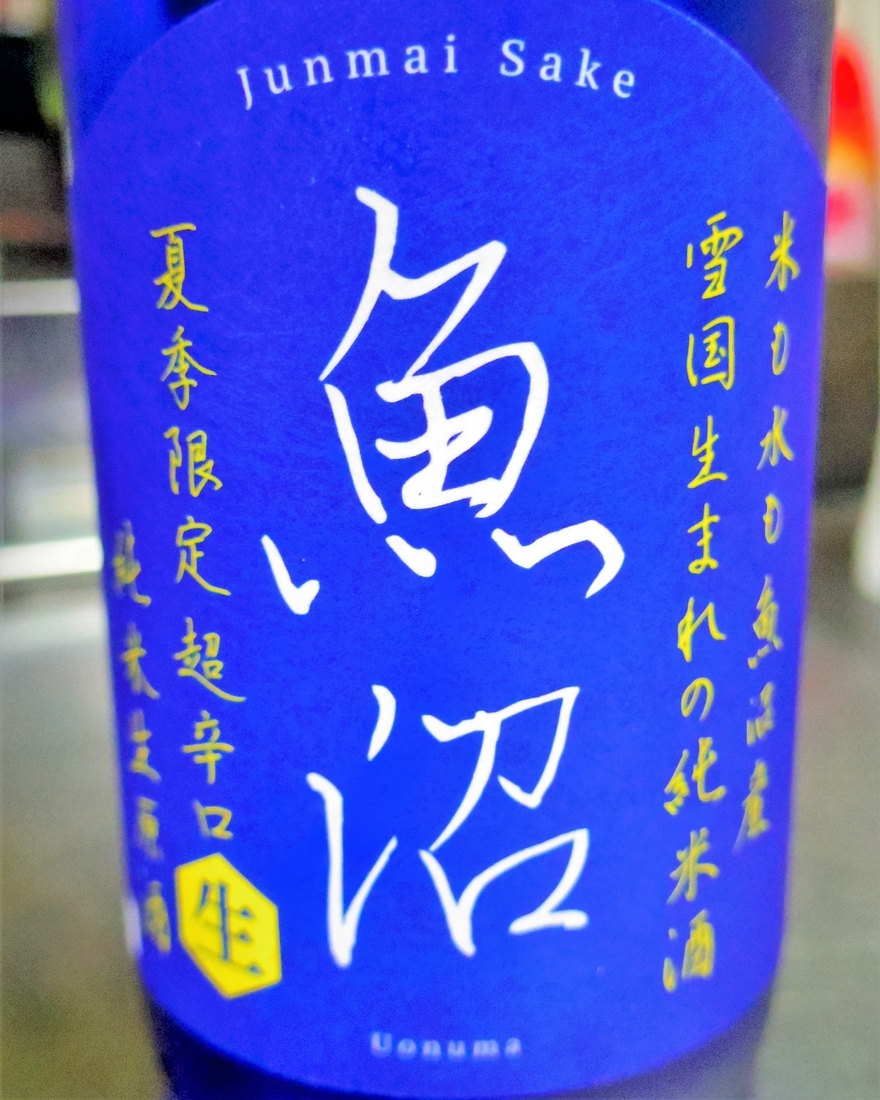 Junmai Sake
米も水も魚沼産
雪国生まれの純米酒
魚沼
夏季限定超辛口
純米生原酒
生
Uonuma